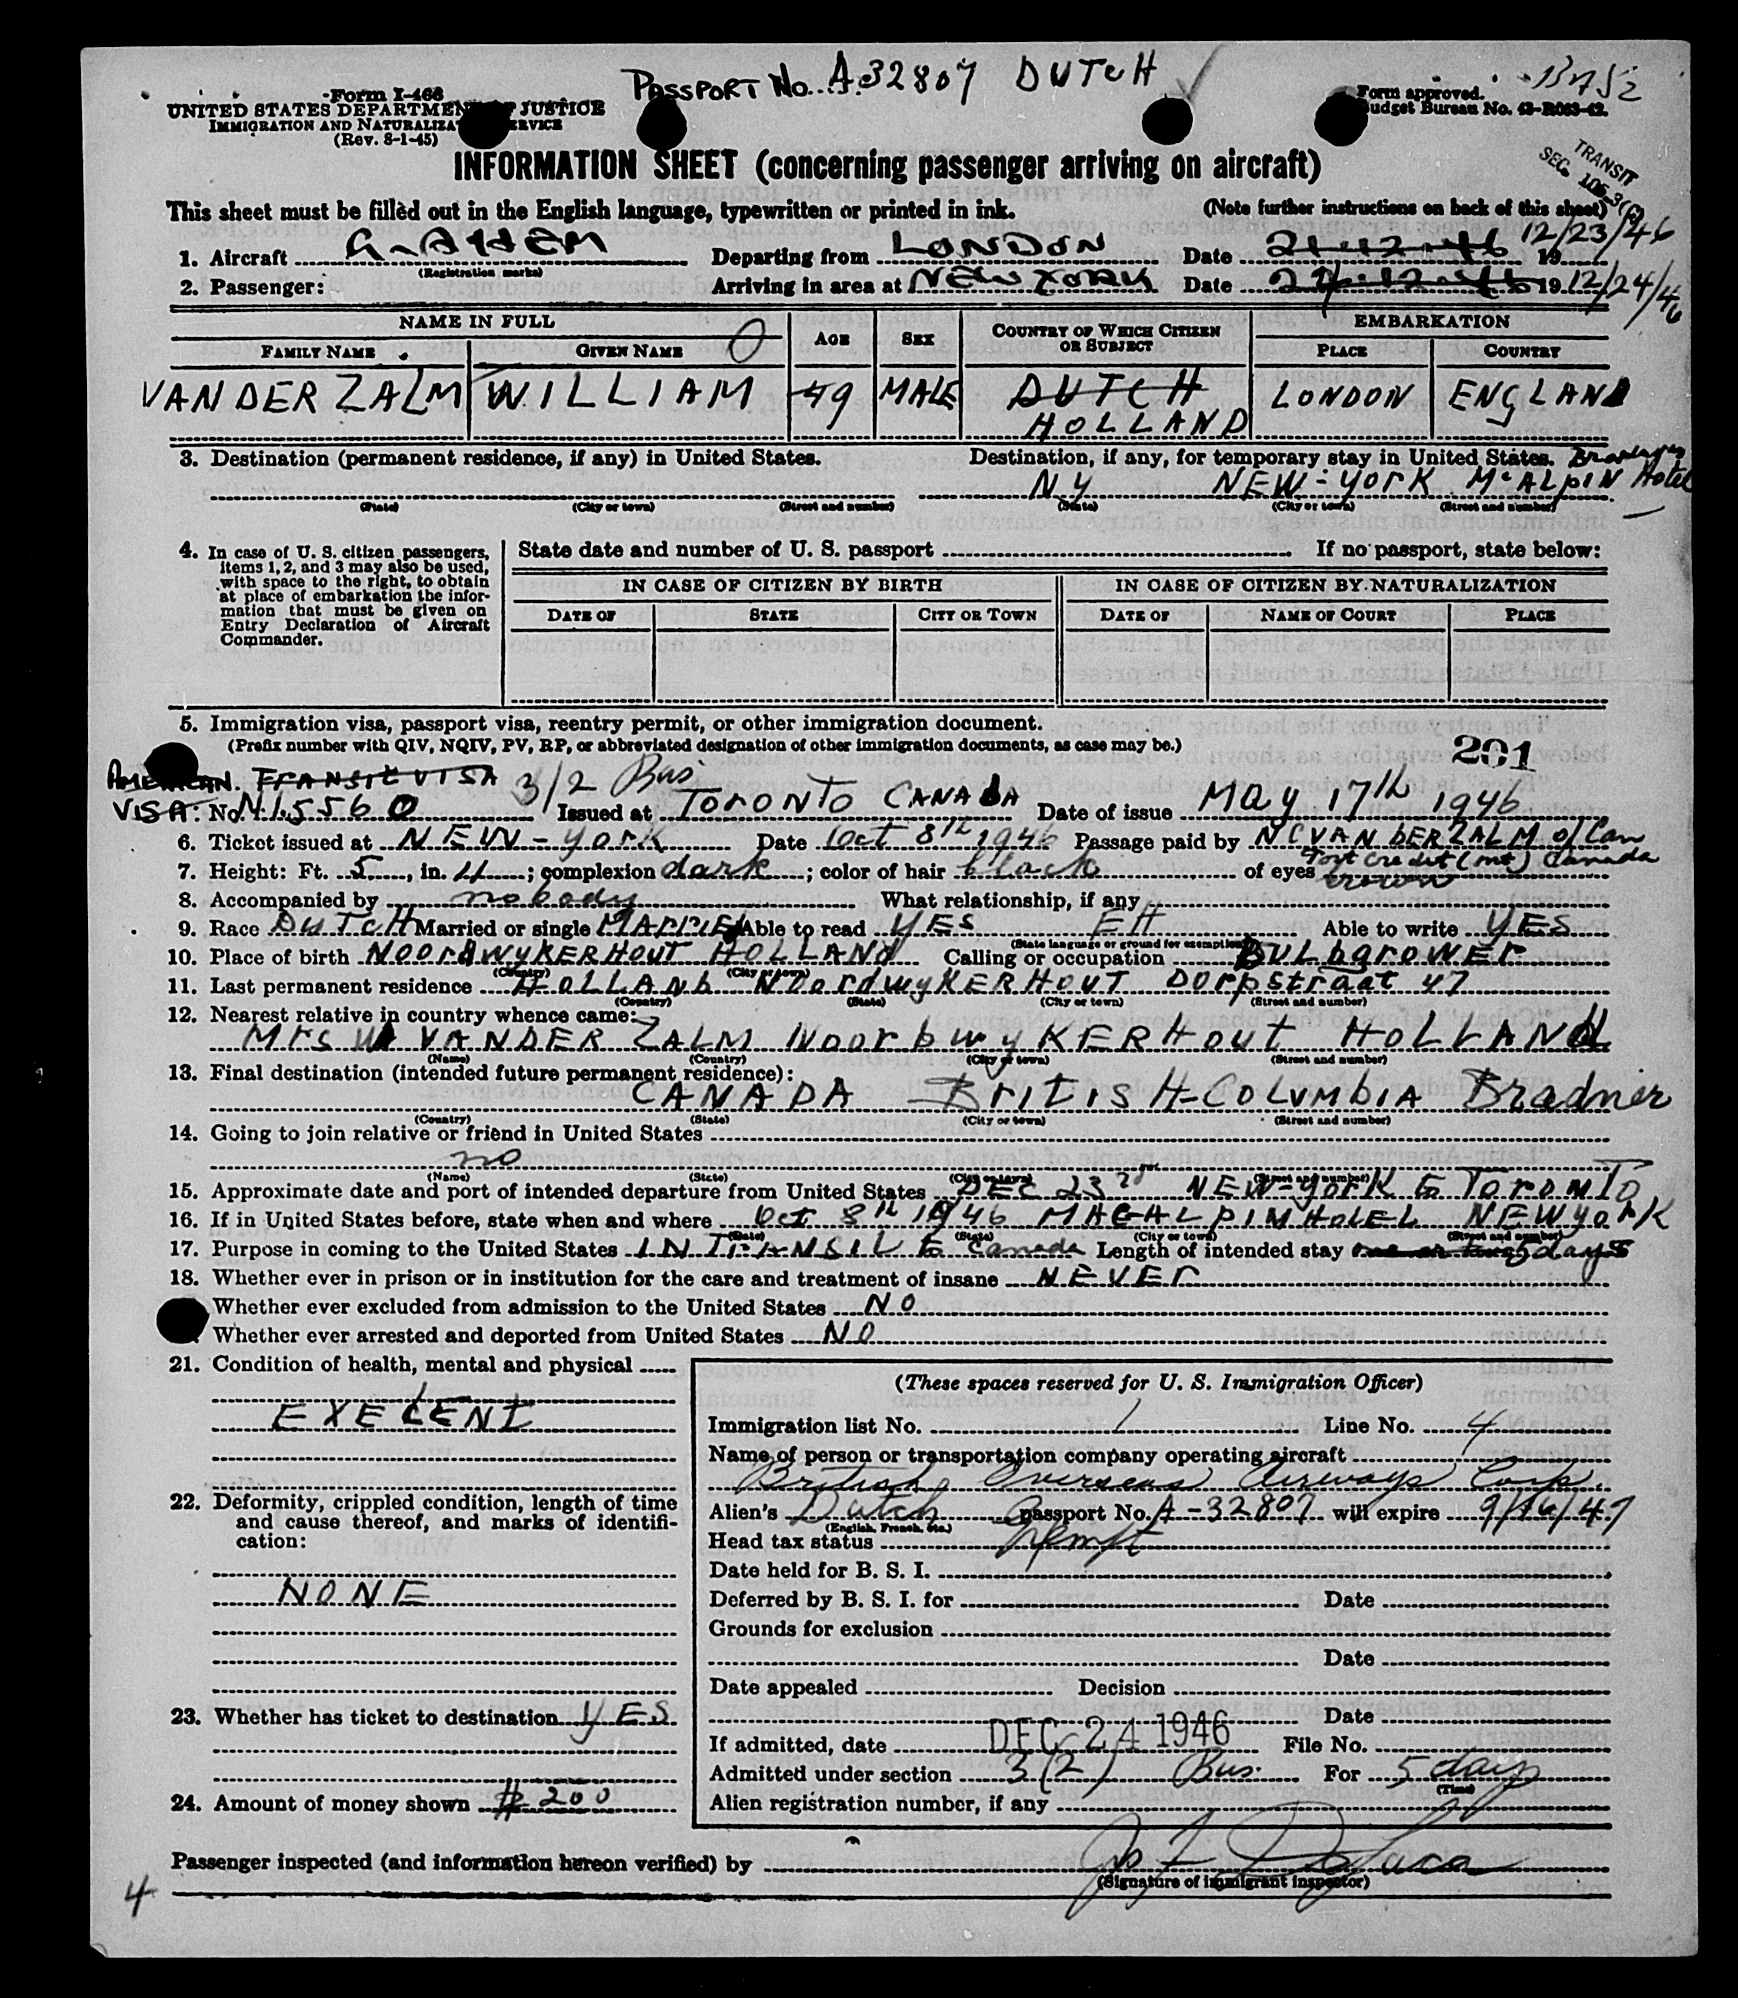 PASSPORT No. A.32807 DUTCH
Form I-466
UNITED STATES DEPARTMENT OF JUSTICE
IMMIGRATION AND NATURALIZATION SERVICE
(Rev. 8-1-45)
Form approved.
Budget Bureau No. 43-R063-42.
TRANSIT
SEC. 105.3
INFORMATION SHEET (concerning passenger arriving on aircraft)
This sheet must be filled out in the English language, typewritten or printed in ink. (Note further instructions on back of this sheet)
1. Aircraft G-AHEM Departing from LONDON Date 21-12-46 19 12/23/46
(Registration marks)
2. Passenger: Arriving in area at NEW YORK Date 19 12/24/46
NAME IN FULL AGE SEX COUNTRY OF WHICH CITIZEN OR SUBJECT EMBARKATION
FAMILY NAME GIVEN NAME PLACE COUNTRY
VAN DER ZALM WILLIAM 49 MALE DUTCH LONDON ENGLAND
HOLLAND
3. Destination (permanent residence, if any) in United States. Destination, if any, for temporary stay in United States.
NY NEW-YORK McALPIN Hotel
(State) (City or town) (Street and number) (State) (City or town) (Street and number)
4. In case of U. S. citizen passengers, items 1, 2, and 3 may also be used, with space to the right, to obtain at place of embarkation the information that must be given on Entry Declaration of Aircraft Commander.
State date and number of U. S. passport If no passport, state below:
IN CASE OF CITIZEN BY BIRTH IN CASE OF CITIZEN BY NATURALIZATION
DATE OF STATE CITY OR TOWN DATE OF NAME OF COURT PLACE
5. Immigration visa, passport visa, reentry permit, or other immigration document.
(Prefix number with QIV, NQIV, PV, RP, or abbreviated designation of other immigration documents, as case may be.)
201
AMERICAN. TRANSIT VISA 3/2 Bus.
VISA: No. N1.5560 Issued at TORONTO CANADA Date of issue MAY 17th 1946
6. Ticket issued at NEW-YORK Date Oct 8th 1946 Passage paid by NCVAN DER ZALM of Can
Canada
7. Height: Ft. 5, in. 11; complexion dark; color of hair black of eyes brown
8. Accompanied by nobody What relationship, if any
9. Race DUTCH Married or single MARRIED Able to read YES EH Able to write YES
(State language or ground for exemption)
10. Place of birth NOORDWYKERHOUT HOLLAND Calling or occupation BULbgrower
(Country) (City or town)
11. Last permanent residence HOLLAND NOORDWYKERHOUT Dorpstraat 47
(Country) (State) (City or town) (Street and number)
12. Nearest relative in country whence came:
Mrs W VANDER ZALM NoordwyKERHout HOLLANd
(Name) (Country) (City or town) (Street and number)
13. Final destination (intended future permanent residence):
CANADA BRITISH-COLUMBIA Bradner
(Country) (State) (City or town) (Street and number)
14. Going to join relative or friend in United States
no
(Name) (State) (City or town) (Street and number)
15. Approximate date and port of intended departure from United States DEC 23rd NEW-YORK to TORONTO
16. If in United States before, state when and where Oct 8th 1946 MACALPIM HOTEL NEWYORK
(Date) (State) (City or town) (Street and number)
17. Purpose in coming to the United States IN TRANSIT to Canada Length of intended stay 5 days
18. Whether ever in prison or in institution for the care and treatment of insane NEVER
Whether ever excluded from admission to the United States NO
Whether ever arrested and deported from United States NO
21. Condition of health, mental and physical
EXELENT
22. Deformity, crippled condition, length of time and cause thereof, and marks of identification:
NONE
23. Whether has ticket to destination YES
24. Amount of money shown $200
(These spaces reserved for U. S. Immigration Officer)
Immigration list No. 1 Line No. 4
Name of person or transportation company operating aircraft
British Overseas Airways Corp.
Alien's Dutch passport No. A-32807 will expire 9/16/47
(English, French, etc.)
Head tax status Exempt
Date held for B. S. I.
Deferred by B. S. I. for Date
Grounds for exclusion
Date
Date appealed Decision
Date
If admitted, date DEC 24 1946 File No.
Admitted under section 3(2) Bus. For 5 days
(Time)
Alien registration number, if any
Passenger inspected (and information hereon verified) by
(Signature of immigrant inspector)
4